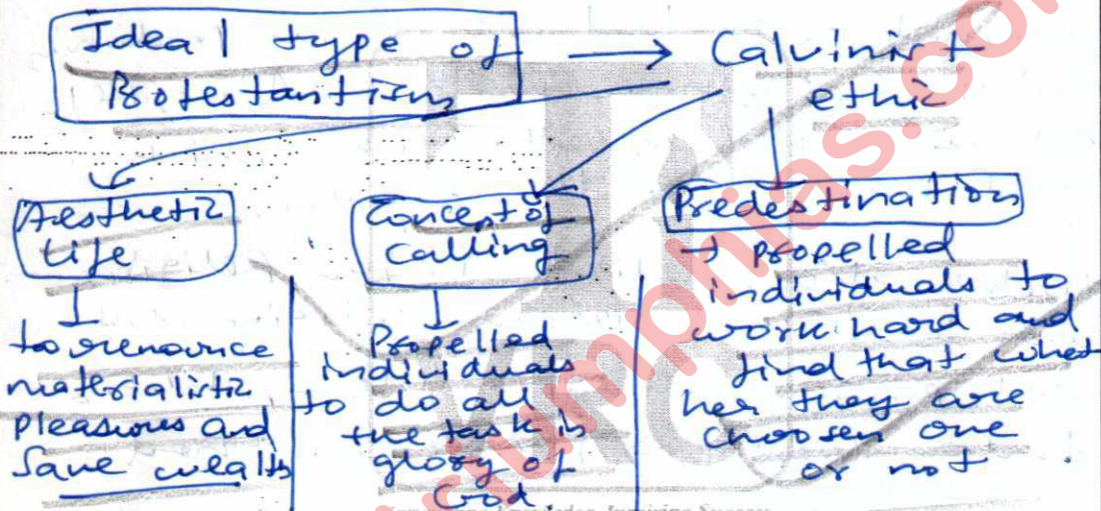 Ideal type of
Protestantism
→ Calvinist
ethic
Aesthetic
life
to renounce
materialistic
pleasures and
Save wealth
Concept of
calling
Propelled
individuals
to do all
the task in
glory of
God
Predestination
→ propelled
individuals to
work hard and
find that whet
her they are
choosen one
or not.